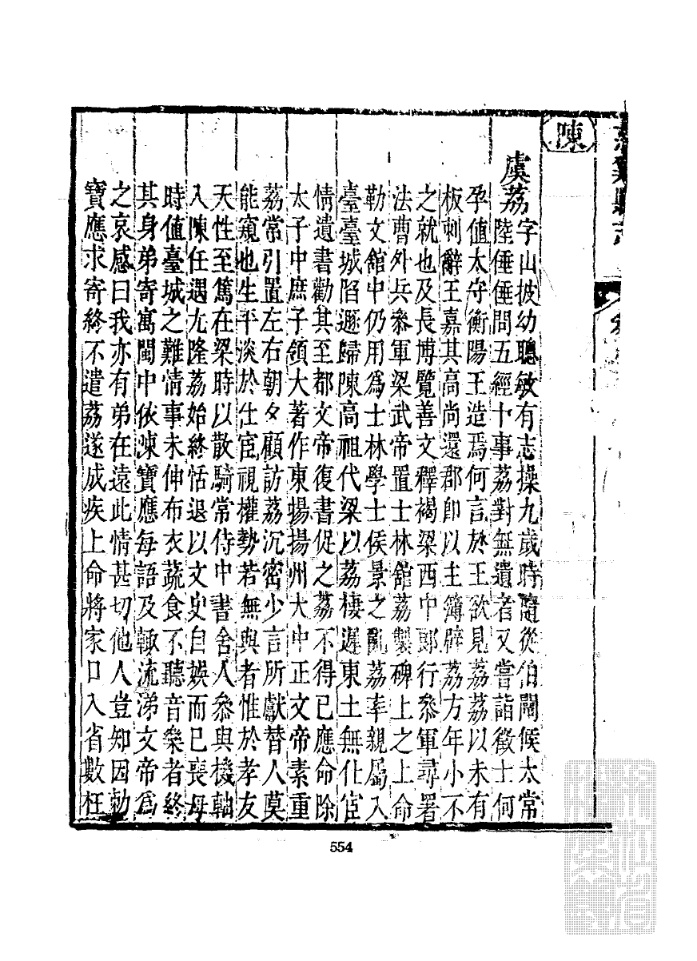 慈谿縣志
陳
虞荔字山披幼聰敏有志操九歲時隨從伯闡候太常
陸倕倕問五經十事荔對無遺者又嘗詣徵士何
孕值太守衡陽王造焉何言於王欲見荔荔以未有
板刺辭王嘉其高尚還郡卽以主簿辟荔方年小不
之就也及長博覽善文釋褐梁西中郎行參軍尋署
法曹外兵參軍梁武帝置士林館荔製碑上之上命
勒文館中仍用爲士林學士侯景之亂荔率親屬入
臺臺城陷遯歸陳高祖代梁以荔棲遲東土無仕宦
情遺書勸其至都文帝復書促之荔不得已應命除
太子中庶子領大著作東揚揚州大中正文帝素重
荔常引置左右朝夕顧訪荔沉密少言所獻替人莫
能窺也生平淡於仕宦視權勢若無與者惟於孝友
天性至篤在梁時以散騎常侍中書舍人參與機軸
入陳任遇尤隆荔始終恬退以文史自娛而已喪母
時値臺城之難情事未伸布衣蔬食不聽音樂者終
其身弟寄寓閩中依陳寶應每語及輒流涕文帝爲
之哀感曰我亦有弟在遠此情甚切他人豈知因勅
寶應求寄終不遣荔遂成疾上命將家口入省數枉
554